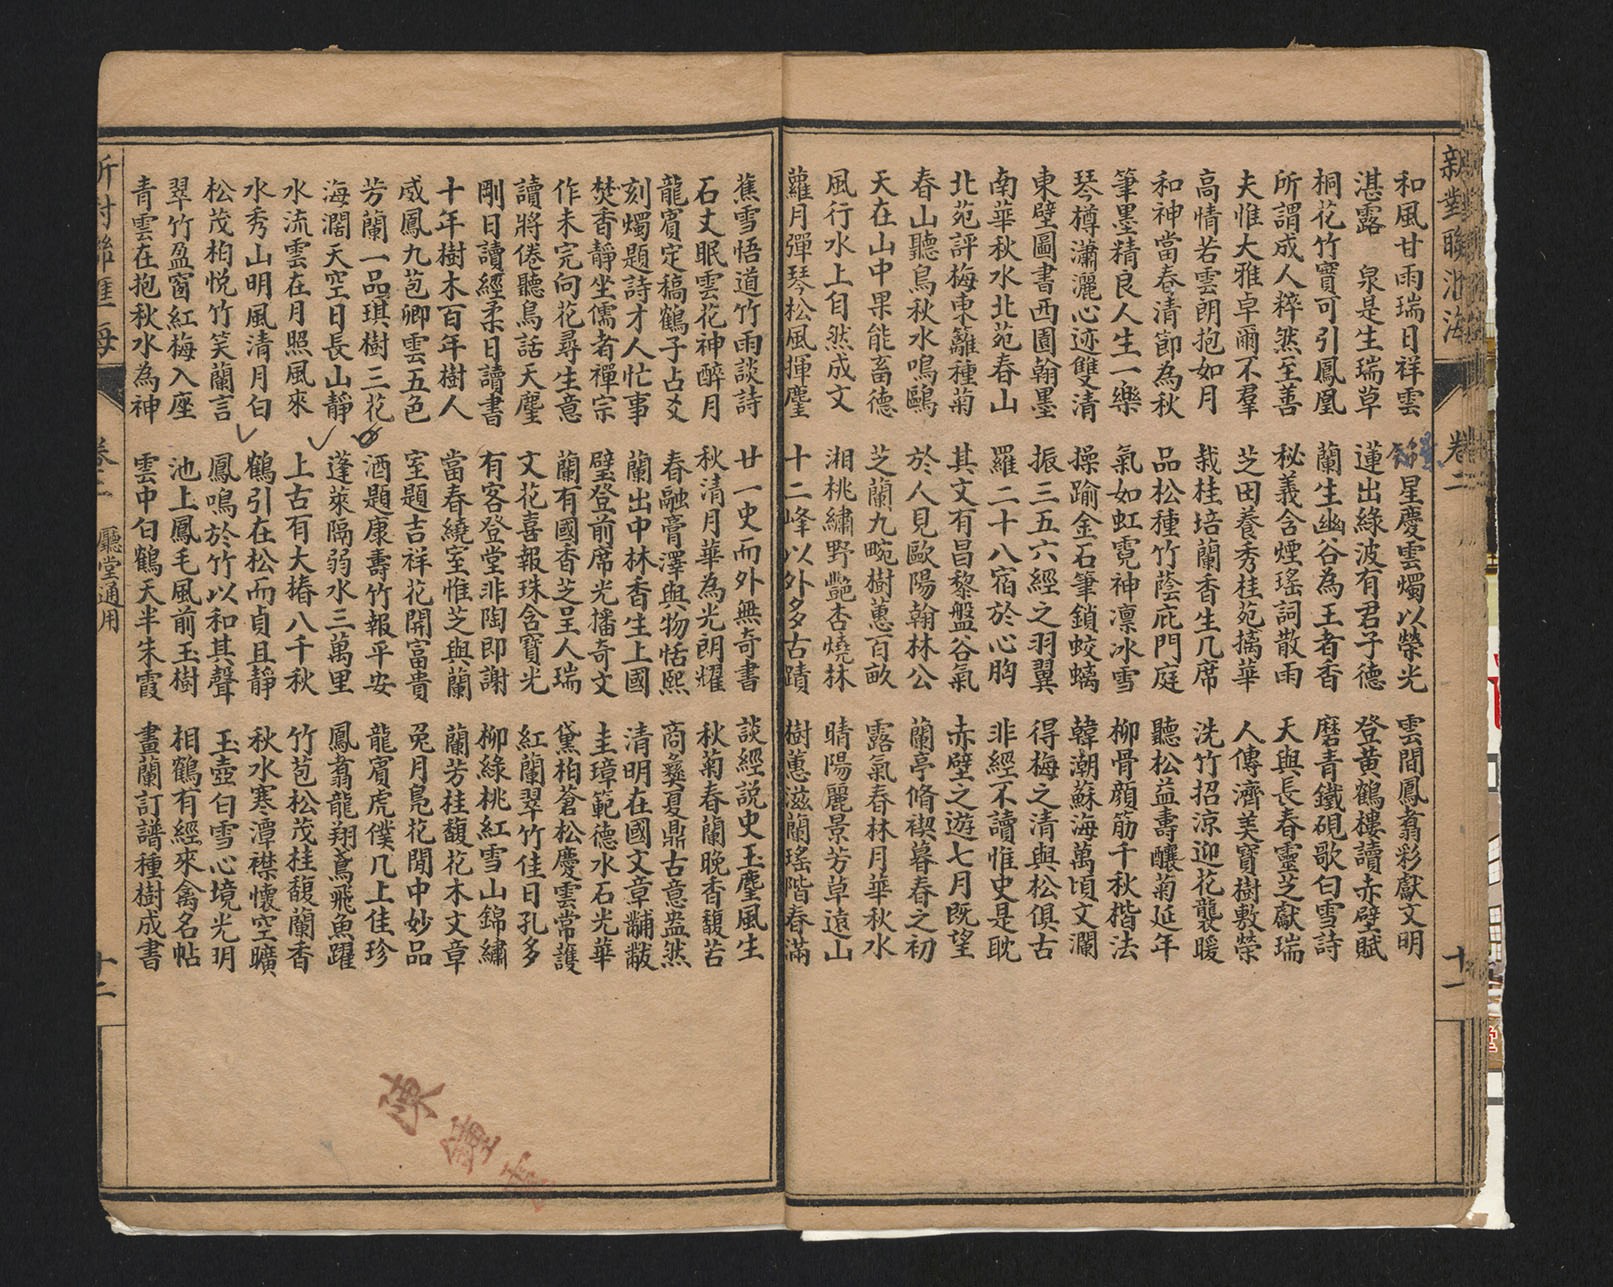 新對聯滙海
卷二
十一
和風甘雨瑞日祥雲 星慶雲燭以榮光 雲間鳳翥彩獻文明
湛露 泉是生瑞草 蓮出綠波有君子德 登黃鶴樓讀赤壁賦
桐花竹實可引鳳凰 蘭生幽谷為王者香 磨青鐵硯歌白雪詩
所謂成人粹然至善 秘義含煙瑤詞散雨 天與長春靈芝獻瑞
夫惟大雅卓爾不羣 芝田養秀桂苑摛華 人傳濟美寶樹敷榮
高情若雲朗抱如月 栽桂培蘭香生几席 洗竹招涼迎花襲暖
和神當春清節為秋 品松種竹蔭庇門庭 聽松益壽釀菊延年
筆墨精良人生一樂 氣如虹霓神凛冰雪 柳骨顏筋千秋楷法
琴樽瀟灑心迹雙清 操踰金石筆鎖蛟螭 韓潮蘇海萬頃文瀾
東壁圖書西園翰墨 振三五六經之羽翼 得梅之清與松俱古
南華秋水北苑春山 羅二十八宿於心胸 非經不讀惟史是耽
北苑評梅東籬種菊 其文有昌黎盤谷氣 赤壁之遊七月既望
春山聽鳥秋水鳴鷗 於人見歐陽翰林公 蘭亭脩禊暮春之初
天在山中果能畜德 芝蘭九畹樹蕙百畝 露氣春林月華秋水
風行水上自然成文 湘桃繡野艷杏燒林 晴陽麗景芳草遠山
蘿月彈琴松風揮麈 十二峰以外多古蹟 樹蕙滋蘭瑤階春滿
蕉雪悟道竹雨談詩 廿一史而外無奇書 談經説史玉麈風生
石丈眠雲花神醉月 秋清月華為光朗耀 秋菊春蘭晚香馥若
龍賓定稿鶴子占爻 春融膏澤與物恬熙 商彝夏鼎古意盎然
刻燭題詩才人忙事 蘭出中林香生上國 清明在國文章黼黻
焚香靜坐儒者禪宗 壁登前席光播奇文 圭璋範德水石光華
作未完向花尋生意 蘭有國香芝呈人瑞 黛柏蒼松慶雲常護
讀將倦聽鳥話天麈 文花喜報珠含寶光 紅蘭翠竹佳日孔多
剛日讀經柔日讀書 有客登堂非陶即謝 柳綠桃紅雪山錦繡
十年樹木百年樹人 當春繞室惟芝與蘭 蘭芳桂馥花木文章
威鳳九苞卿雲五色 室題吉祥花開富貴 兔月鳧花閒中妙品
芳蘭一品琪樹三花 酒題康壽竹報平安 龍賓虎僕几上佳珍
海濶天空日長山靜 蓬萊隔弱水三萬里 鳳翥龍翔鳶飛魚躍
水流雲在月照風來 上古有大椿八千秋 竹苞松茂桂馥蘭香
水秀山明風清月白 鶴引在松而貞且靜 秋水寒潭襟懷空曠
松茂柏悦竹笑蘭言 鳳鳴於竹以和其聲 玉壺白雪心境光明
翠竹盈窗紅梅入座 池上鳳毛風前玉樹 相鶴有經來禽名帖
青雲在抱秋水為神 雲中白鶴天半朱霞 畫蘭訂譜種樹成書
新對聯滙海
卷二 廳堂通用
十二